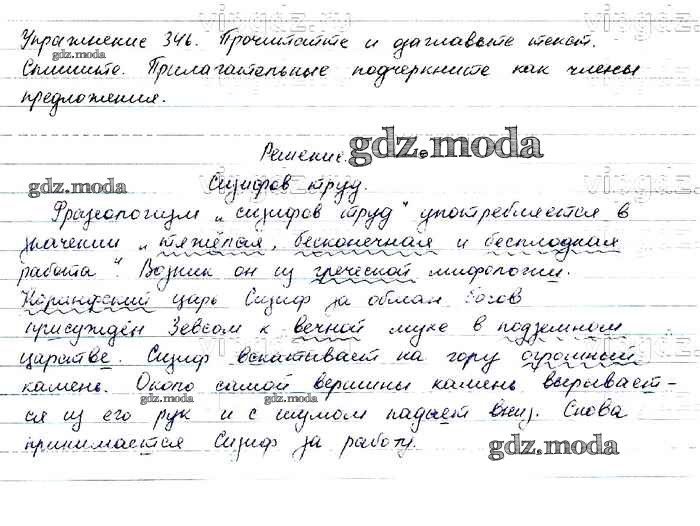 Упражнение 346. Прочитайте и озаглавьте текст.
gdz.moda
Спишите. Прилагательные подчеркните как члены
предложения.
Решение.
gdz.moda
gdz.moda
Сизифов труд.
Фразеологизм „сизифов труд“ употребляется в
значении „тяжёлая, бесконечная и бесплодная
работа“. Возник он из греческой мифологии.
Коринфский царь Сизиф за обман богов
присуждён Зевсом к вечной муке в подземном
царстве. Сизиф вскатывает на гору огромный
камень. Около самой вершины камень вырывает-
gdz.moda
gdz.moda
ся из его рук и с шумом падает вниз. Снова
принимается Сизиф за работу.
gdz.moda